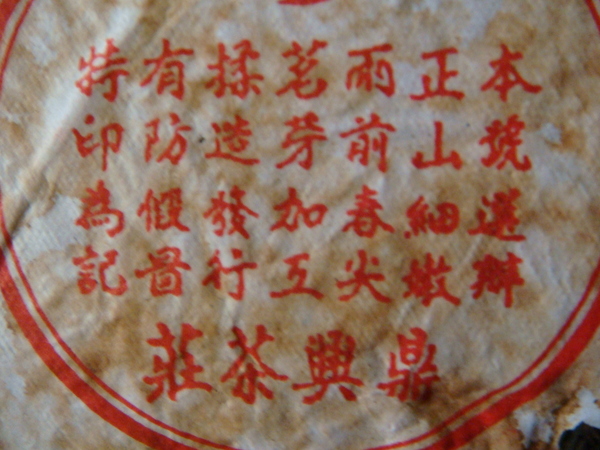 本號選辦
正山細嫩
雨前春尖
茗芽加工
揉造發行
有防假啚
特印為記
鼎興茶莊